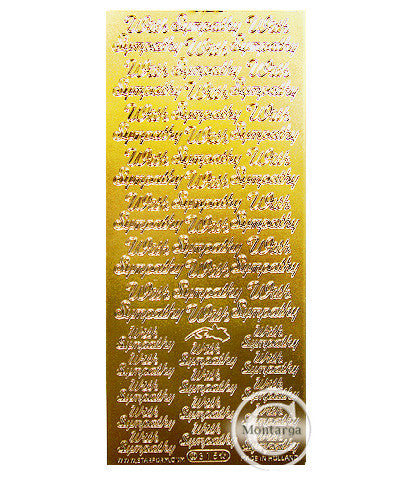 With Sympathy With
Sympathy With Sympathy
With Sympathy With
Sympathy With Sympathy
With Sympathy With
Sympathy With Sympathy
With Sympathy With
Sympathy With Sympathy
With Sympathy With
Sympathy With Sympathy
With Sympathy With
Sympathy With Sympathy
With Sympathy With
Sympathy With Sympathy
With With
Sympathy Sympathy
With
Sympathy
With With
Sympathy Sympathy
With
Sympathy
With With
Sympathy Sympathy
With
Sympathy
With With
Sympathy Sympathy
With
Sympathy
With With
Sympathy Sympathy
Montarga
WWW.STARFORM.COM
IN HOLLAND